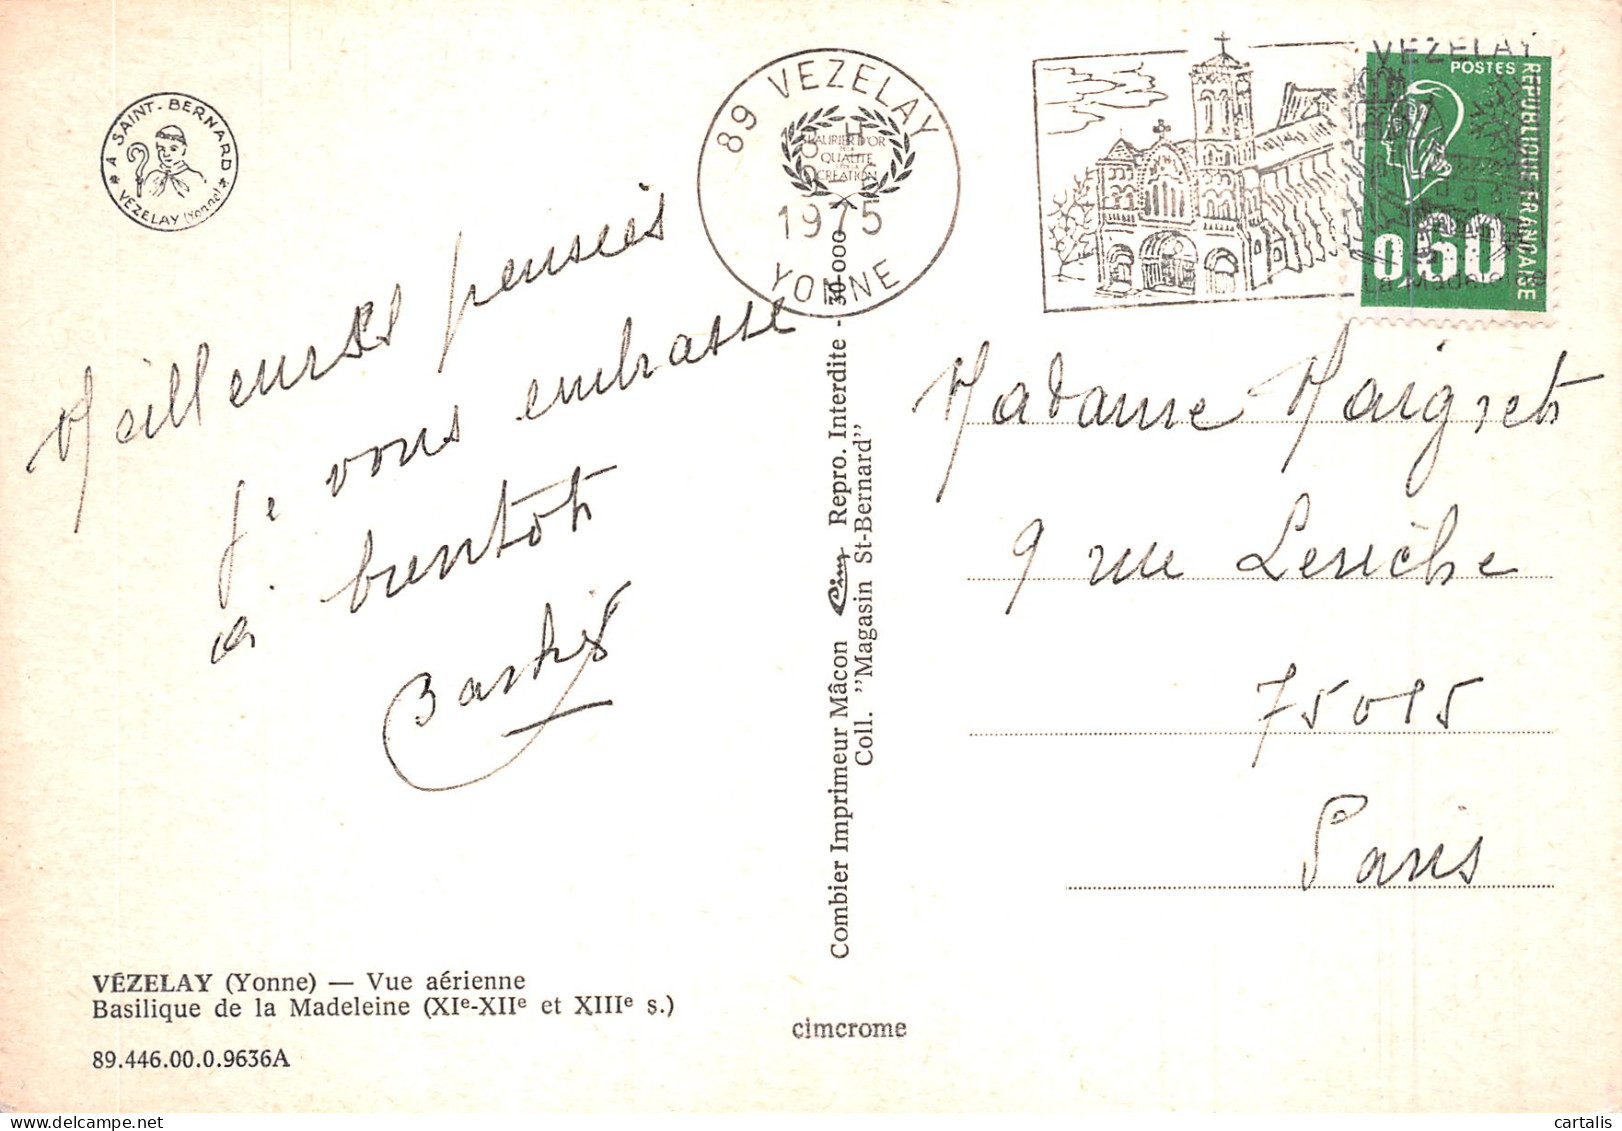 A SAINT-BERNARD
VEZELAY (Yonne)
Meilleures pensées
je vous embrasse
a bientot
VÉZELAY (Yonne) — Vue aérienne
Basilique de la Madeleine (XIe-XIIe et XIIIe s.)
89.446.00.0.9636A
Combier Imprimeur Mâcon Cim Repro. Interdite - 30-000
Coll. "Magasin St-Bernard"
cimcrome
89 VEZELAY
1975
YONNE
LAURIER D'OR
DE LA
QUALITÉ
CRÉATION
VEZELAY
La Madeleine
POSTES
REPUBLIQUE FRANÇAISE
0,60
Madame Maigret
9 rue Leriche
75015
Paris
cartalis
delcampe.net